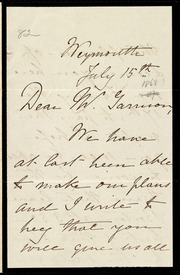 82
Weymouth
July 15th
Dear Mr Garrison,
We have
at last been able
to make our plans
and I write to
beg that you
will give us all